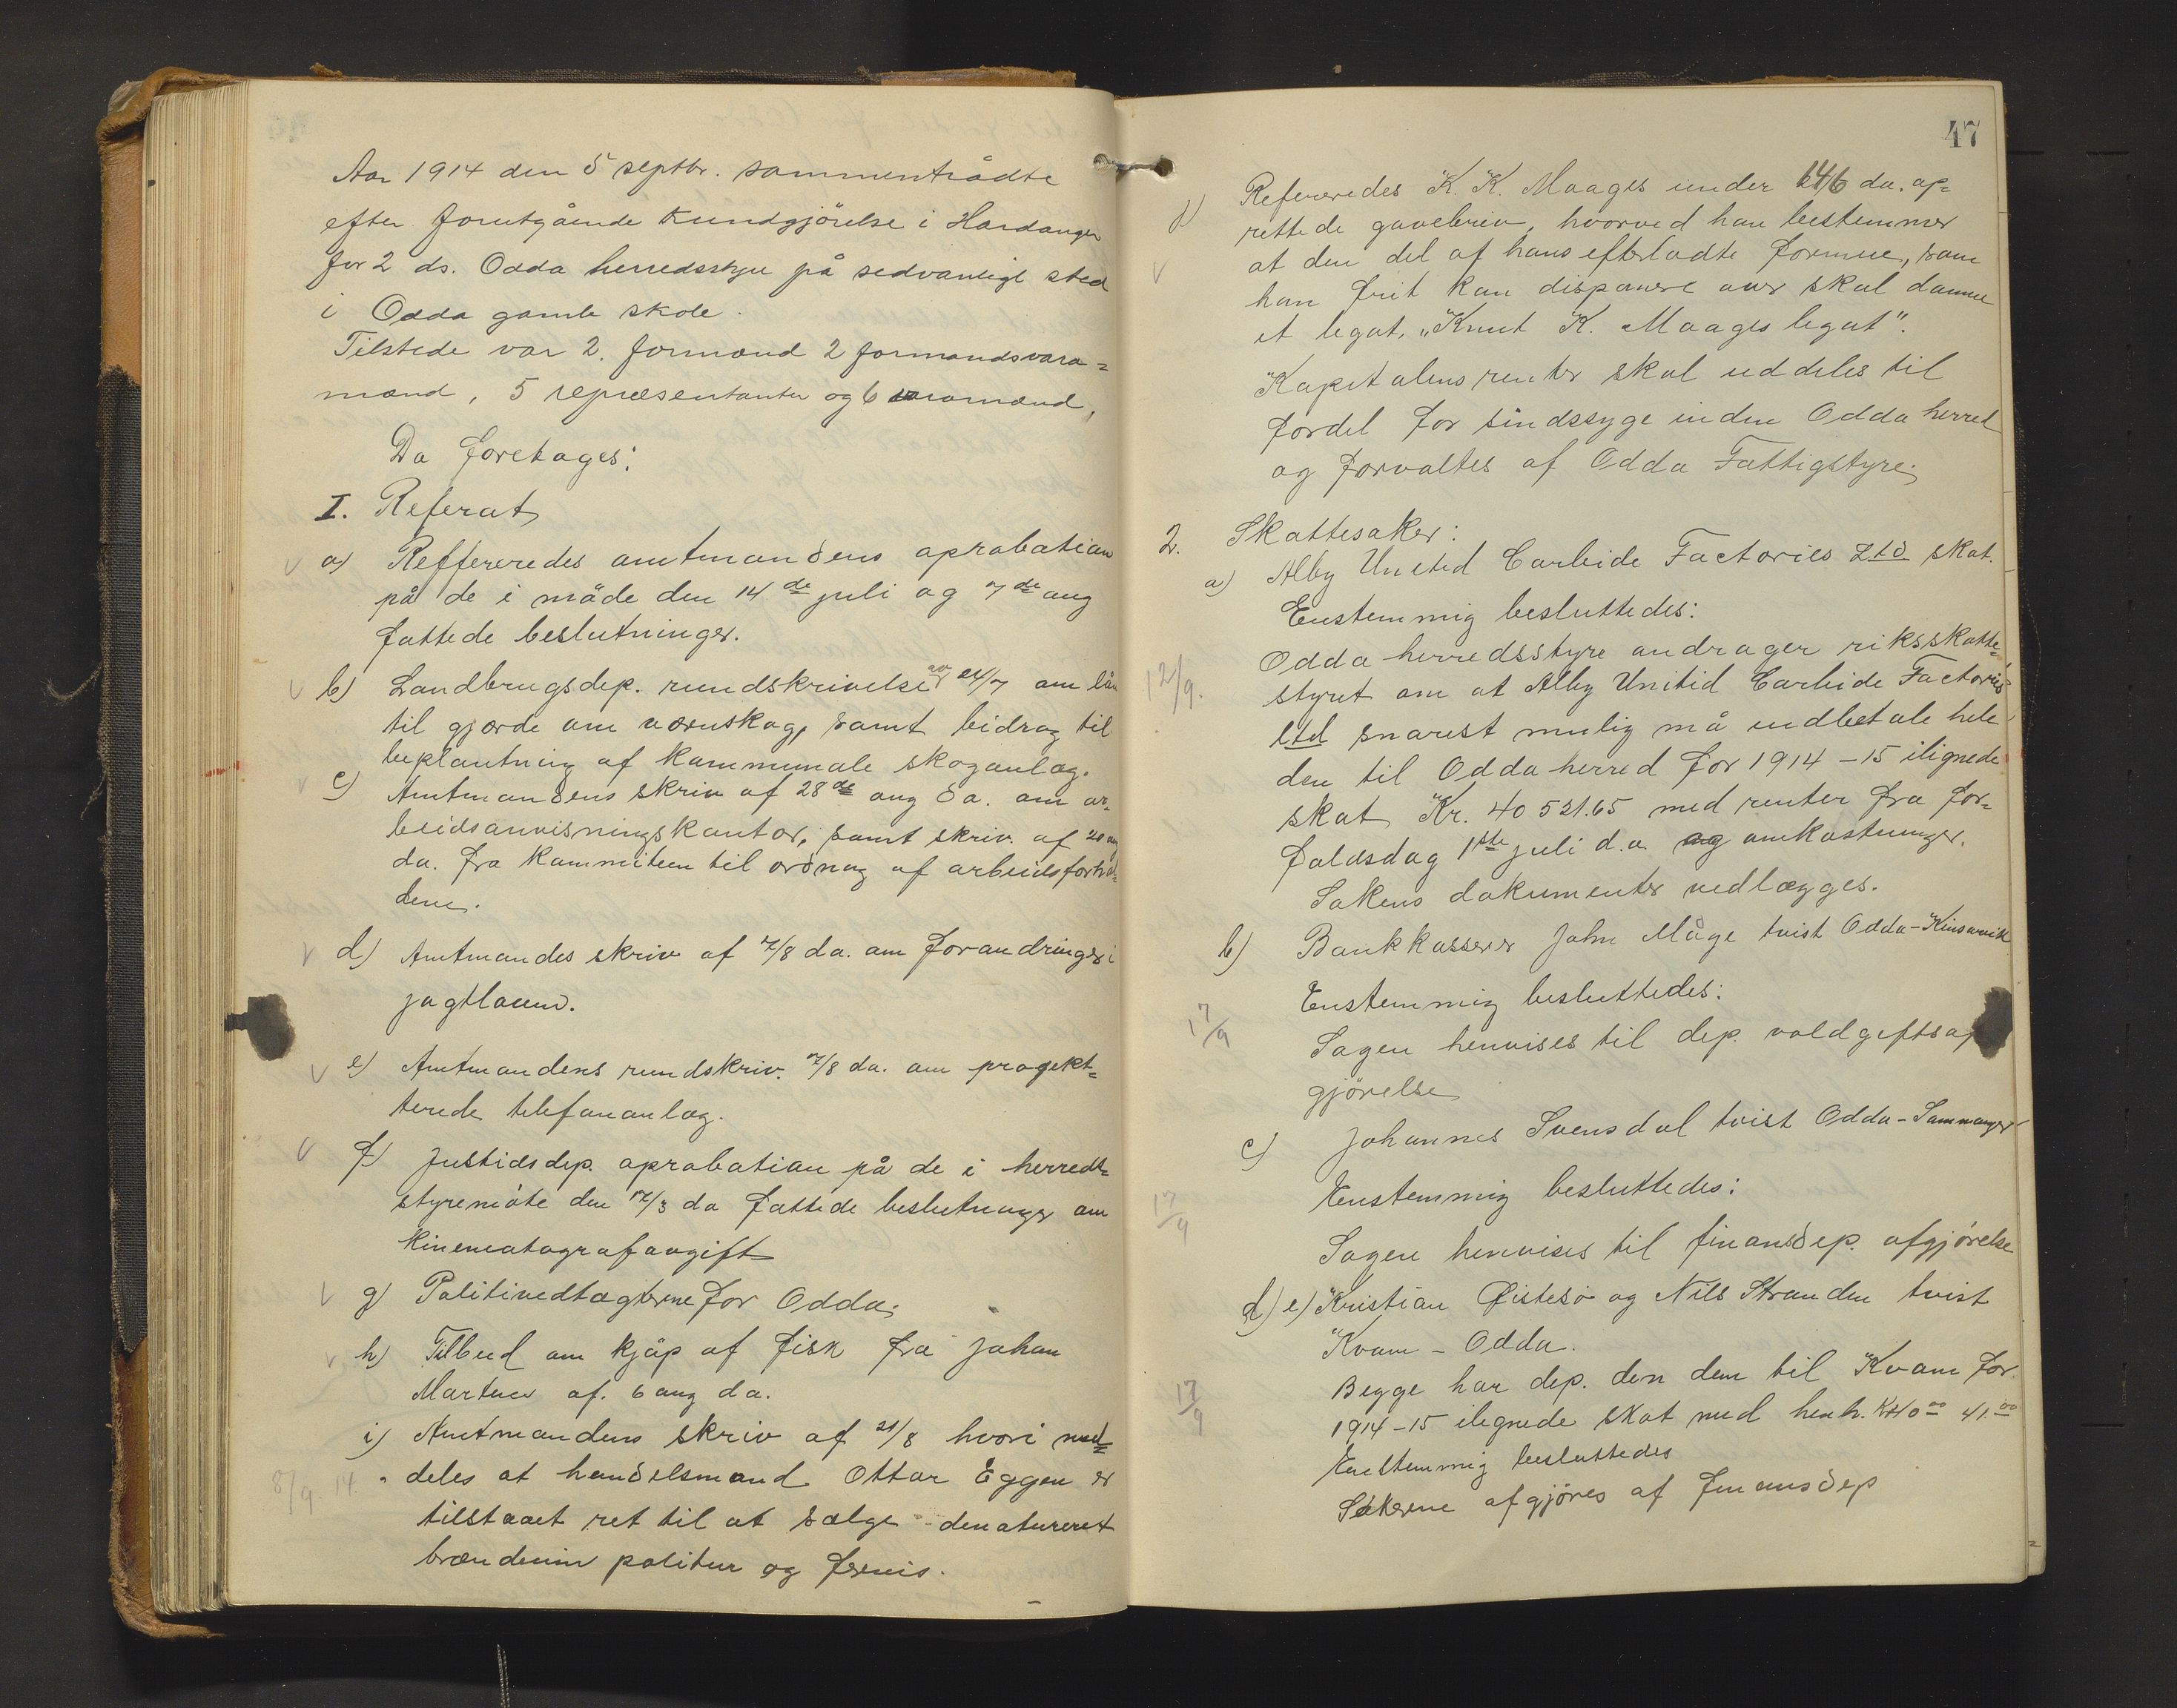 Aar 1914 den 5 septbr. sammentrådte
efter forutgående kundgjörelse i Hardanger
for 2 ds. Odda herredsstyre på sedvanligt sted
i Odda gamle skole.
Tilstede var 2. formænd 2 formandsvara=
mænd, 5 repræsentanter og 6 varamænd,
Da foretages:
I. Referat
a) Reffereredes amtmandens aprobation
på de i møde den 14de juli og 7de aug
fattede beslutninger.
b) Landbrugsdep. rundskrivelse av 24/7 om lån
til gjærde om vernskog, samt bidrag til
beplantning af kommunale skoganlæg.
c) Amtmandens skriv af 28de aug da. om ar-
beidsanvisningskontor, samt skriv. af 20 aug
da. fra kommiteen til ordning af arbeidsforhol=
dene.
d) Amtmandes skriv af 7/8 da. om forandringer i
jagtloven.
e) Amtmandens rundskriv. 7/8 da. om projekt=
terede telefonanlæg.
f) Justisdep. aprobation på de i herreds=
styremöte den 17/3 da fattede beslutninger om
kinematografavgift
g) Politivedtægterne for Odda.
h) Tilbud om kjöp af fisk fra Johan
af. 6 aug da.
i) Amtmandens skriv af 21/8 hvori med=
8/9. 14. deles at handelsmand Ottar Eggen er
tilstaaet ret til at sælge denatureret
brændevin politur og fernis.
47
j) Refereredes K. K. Maages under 14/6 da. op=
rettede gavebrev, hvorved han bestemmer
at den del af hans efterladte formue, som
han frit kan disponere over skal danne
et legat, „Knut K. Maages legat".
Kapitalens renter skal uddeles til
fordel for sindssyge inden Odda herred
og forvaltes af Odda Fattigstyre.
2. Skattesaker:
a) Alby United Carbide Factories Ltd skat.
Enstemmig besluttedes:
Odda herredsstyre andrager riksskatte=
12/9. styret om at Alby Unitid Carbide Factories
Ltd snarest mulig må indbetale hele
den til Odda herred for 1914-15 ilignede
skat Kr. 40 521.65 med renter fra for=
faldsdag 1ste juli d.a og omkostninger.
Sakens dokumenter vedlægges.
b) Bankkasserer John Måge tvist Odda-Kinsarvik
Enstemmig besluttedes:
17/9 Sagen henvises til dep. voldgiftsaf
gjörelse
c) Johannes Svensdal tvist Odda-Sammanger
Enstemmig besluttedes:
17/9 Sagen henvises til finansdep. afgjörelse
d) e) Kristian Øistesö og Nils Stranden tvist
Kvam - Odda.
Begge har dep. den dem til Kvam for
17/9 1914-15 ilignede skat med henh. Kr 40 00 41.00
Enstemmig besluttedes
Sakerne afgjöres af finansdep